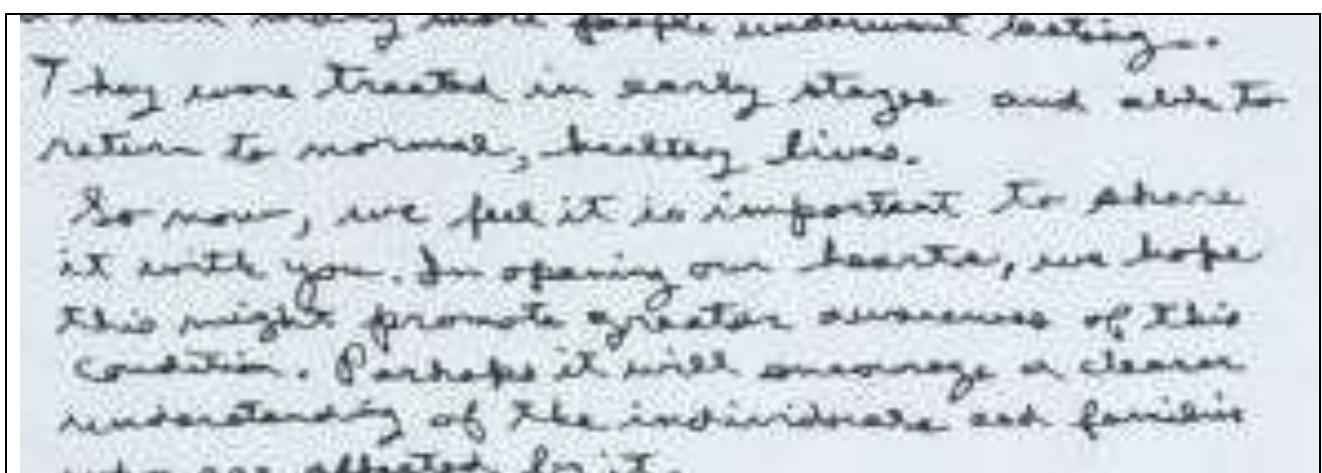 a result many more people underwent testing.
They were treated in early stages and able to
return to normal, healthy lives.
So now, we feel it is important to share
it with you. In opening our hearts, we hope
this might promote greater awareness of this
condition. Perhaps it will encourage a clearer
understanding of the individuals and families
who are affected by it.